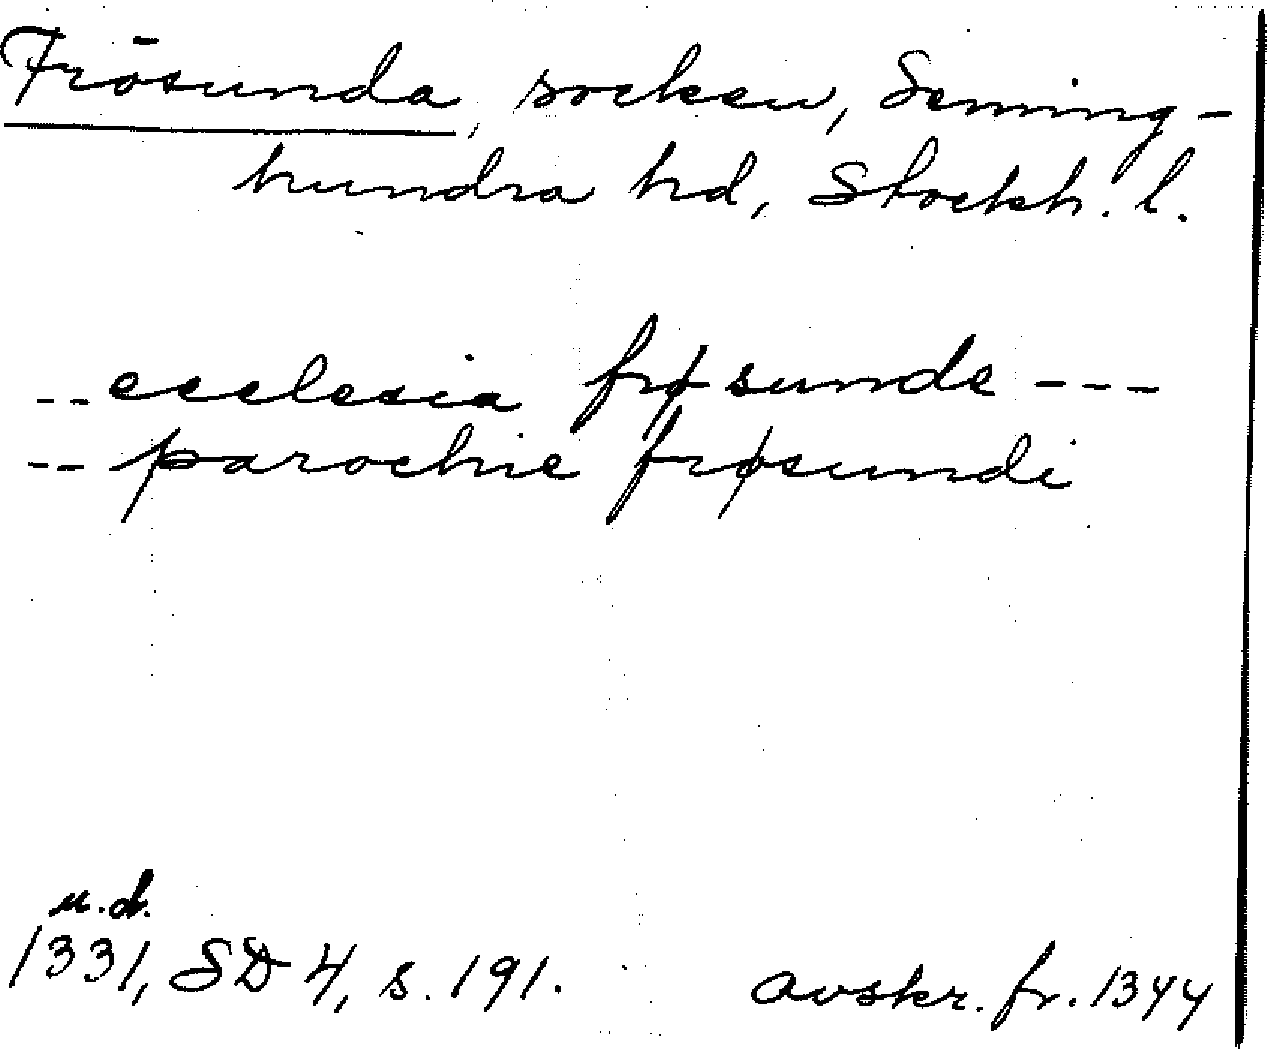 Frösunda, socken, Seming-
hundra hd, Stockh. l.
-- ecclesia frøsunde ---
-- parochie frøsundi
u.d.
1331, SD 4, s. 191. avskr. fr. 1344